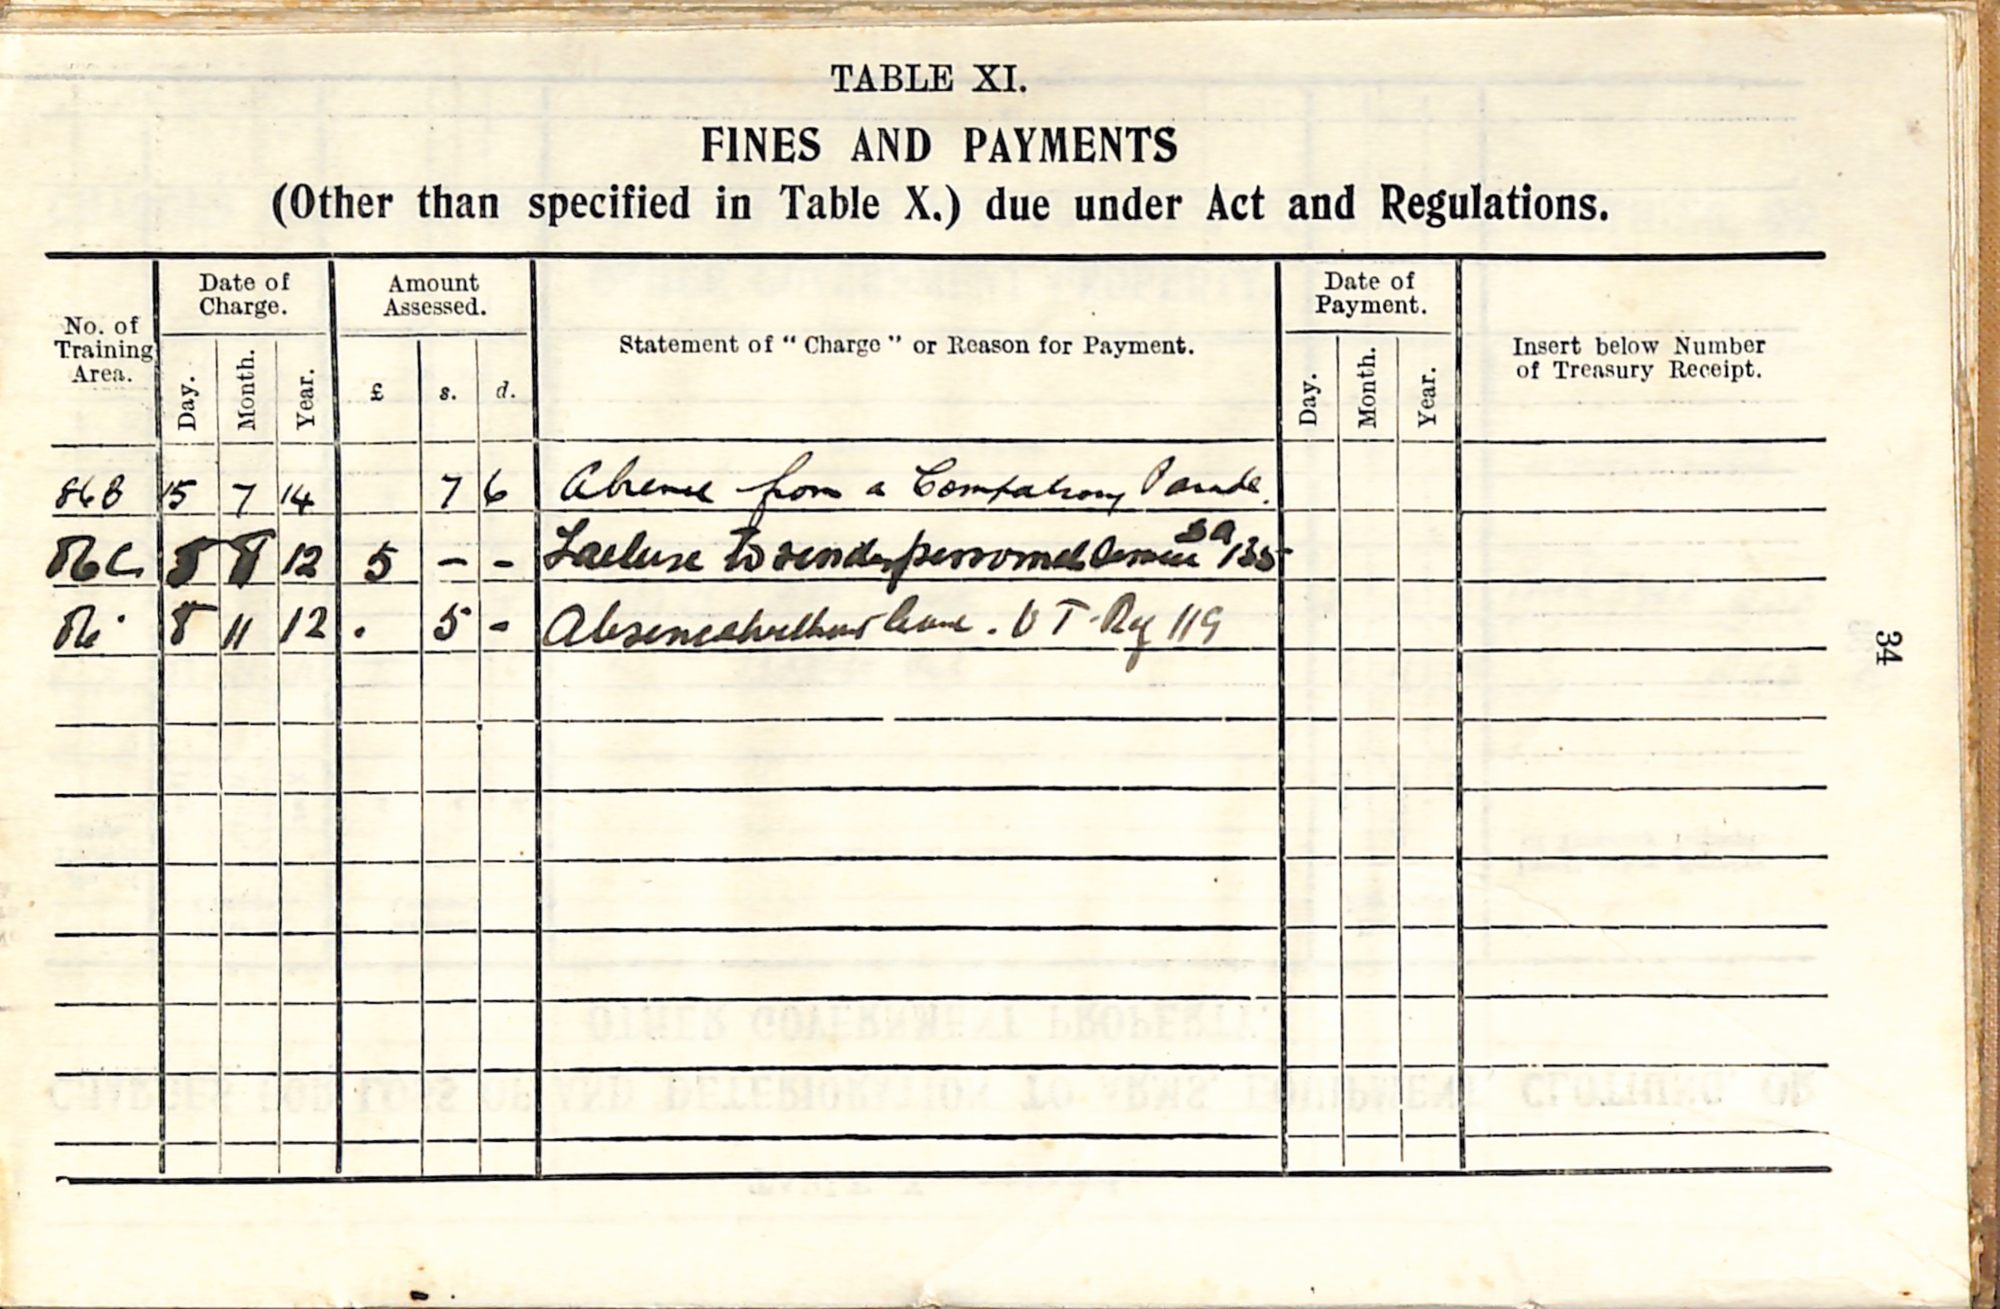 TABLE XI.
FINES AND PAYMENTS
(Other than specified in Table X.) due under Act and Regulations.
No. of Training Area.
Date of Charge.
Day. Month. Year.
Amount Assessed.
£ s. d.
Statement of "Charge" or Reason for Payment.
Date of Payment.
Day. Month. Year.
Insert below Number of Treasury Receipt.
86B 15 7 14 7 6 Absence from a Compulsory Parade.
8 8 12 5 - - Failure to render personal Service 135
8 11 12 . 5 - Absence without leave. U T. Reg 119
34